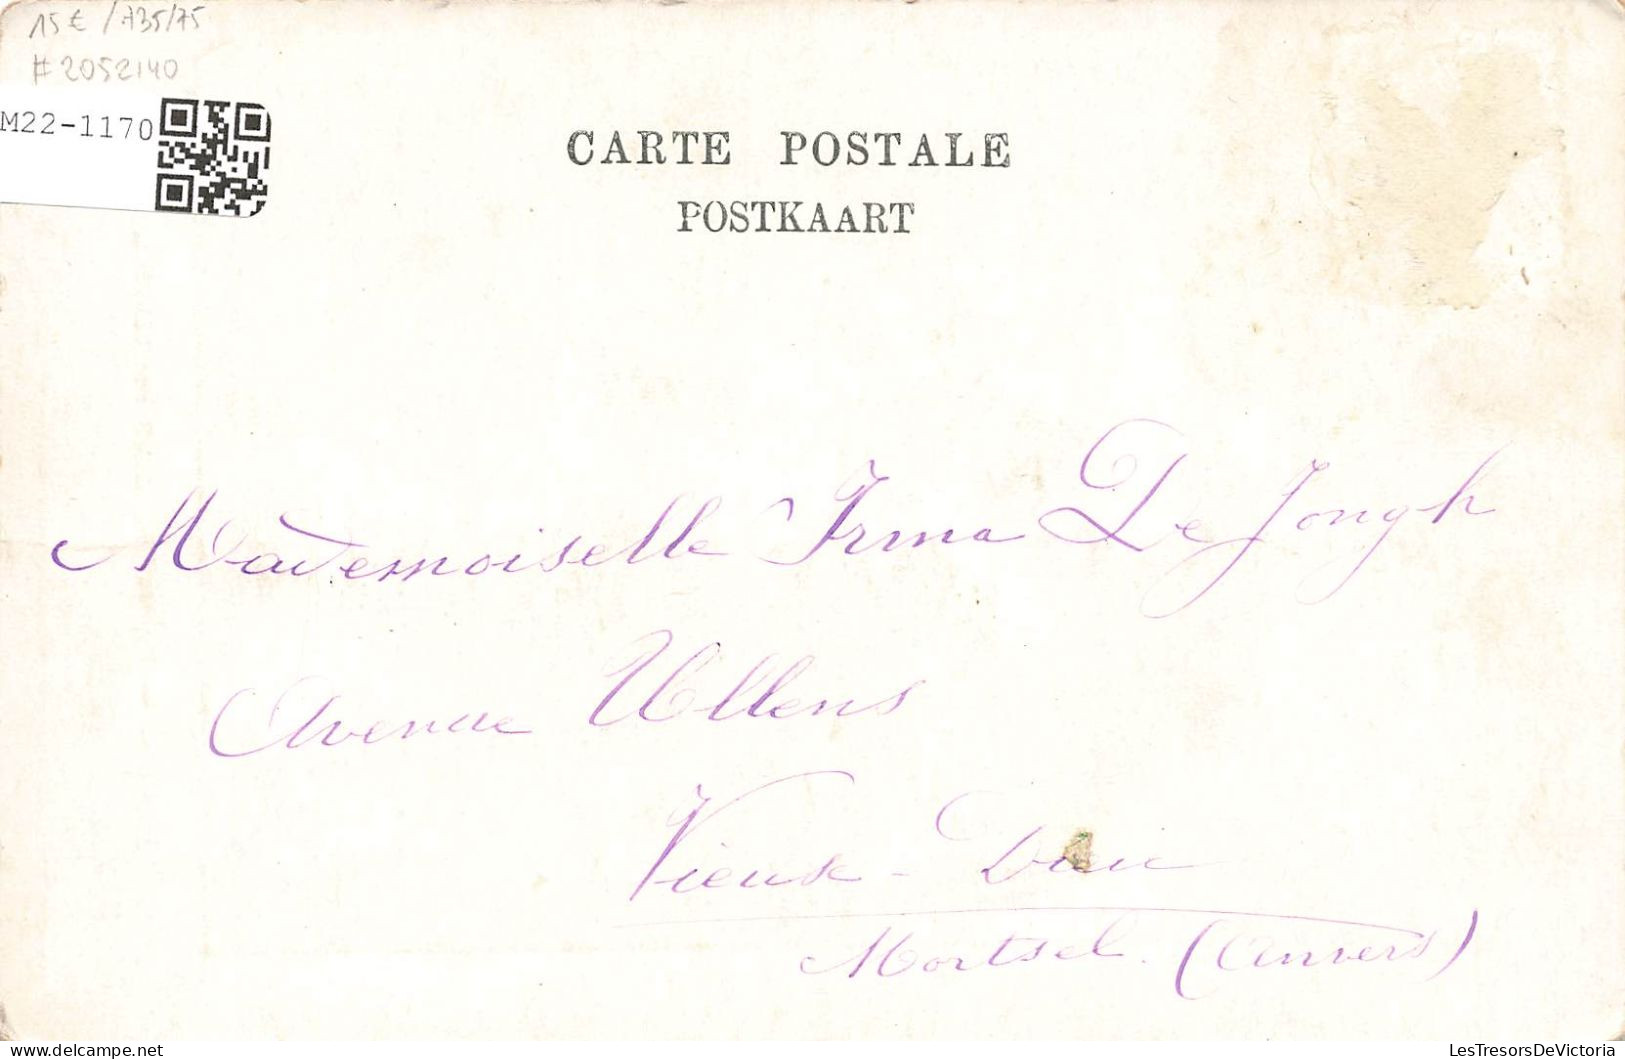 15 € / 735/75
# 2052140
M22-1170
CARTE POSTALE
POSTKAART
Mademoiselle Irma De Jongh
Avenue Ullens
Vieux-Dieu
Mortsel. (Anvers)
delcampe.net
LesTresorsDeVictoria